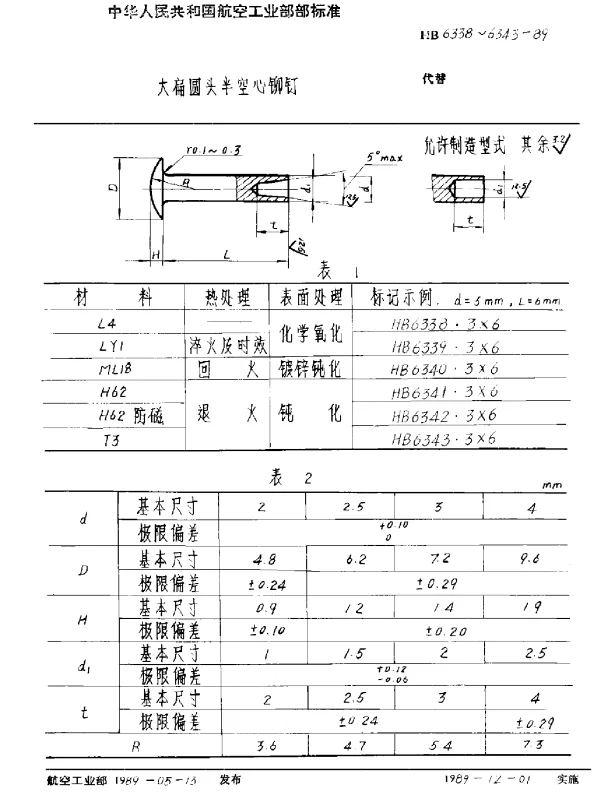 中华人民共和国航空工业部部标准
HB 6338~6343-89
大扁圆头半空心铆钉
代替
允许制造型式 其余 3.2
r0.1~0.3
5°max
D
R
d₁
d
t
H
L
d₁
12.5
t
表 1
材 料 热处理 表面处理 标记示例. d=3mm, L=6mm
L4 —— 化学氧化 HB6338·3×6
LY1 淬火及时效 HB6339·3×6
ML18 回 火 镀锌钝化 HB6340·3×6
H62 退 火 钝 化 HB6341·3×6
H62 防磁 HB6342·3×6
T3 HB6343·3×6
表 2
mm
d 基本尺寸 2 2.5 3 4
极限偏差 +0.10 0
D 基本尺寸 4.8 6.2 7.2 9.6
极限偏差 ±0.24 ±0.29
H 基本尺寸 0.9 1.2 1.4 1.9
极限偏差 ±0.10 ±0.20
d₁ 基本尺寸 1 1.5 2 2.5
极限偏差 +0.12 -0.06
t 基本尺寸 2 2.5 3 4
极限偏差 ±0.24 ±0.29
R 3.6 4.7 5.4 7.3
航空工业部 1989-05-13 发布 1989-12-01 实施